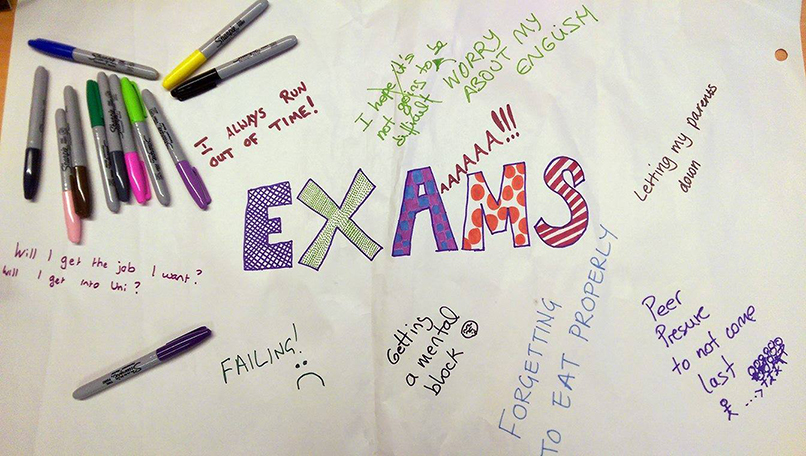 Sharpie
Sharpie
I ALWAYS RUN
OUT OF TIME!
I hope it's
not going to be
difficult
WORRY
ABOUT MY
ENGLISH
AAAAAA!!!
EXAMS
Letting my parents
down
Will I get the job I want?
Will I get into Uni?
FAILING!
Getting
a mental
block
FORGETTING
TO EAT PROPERLY
Peer
Presure
to not come
last